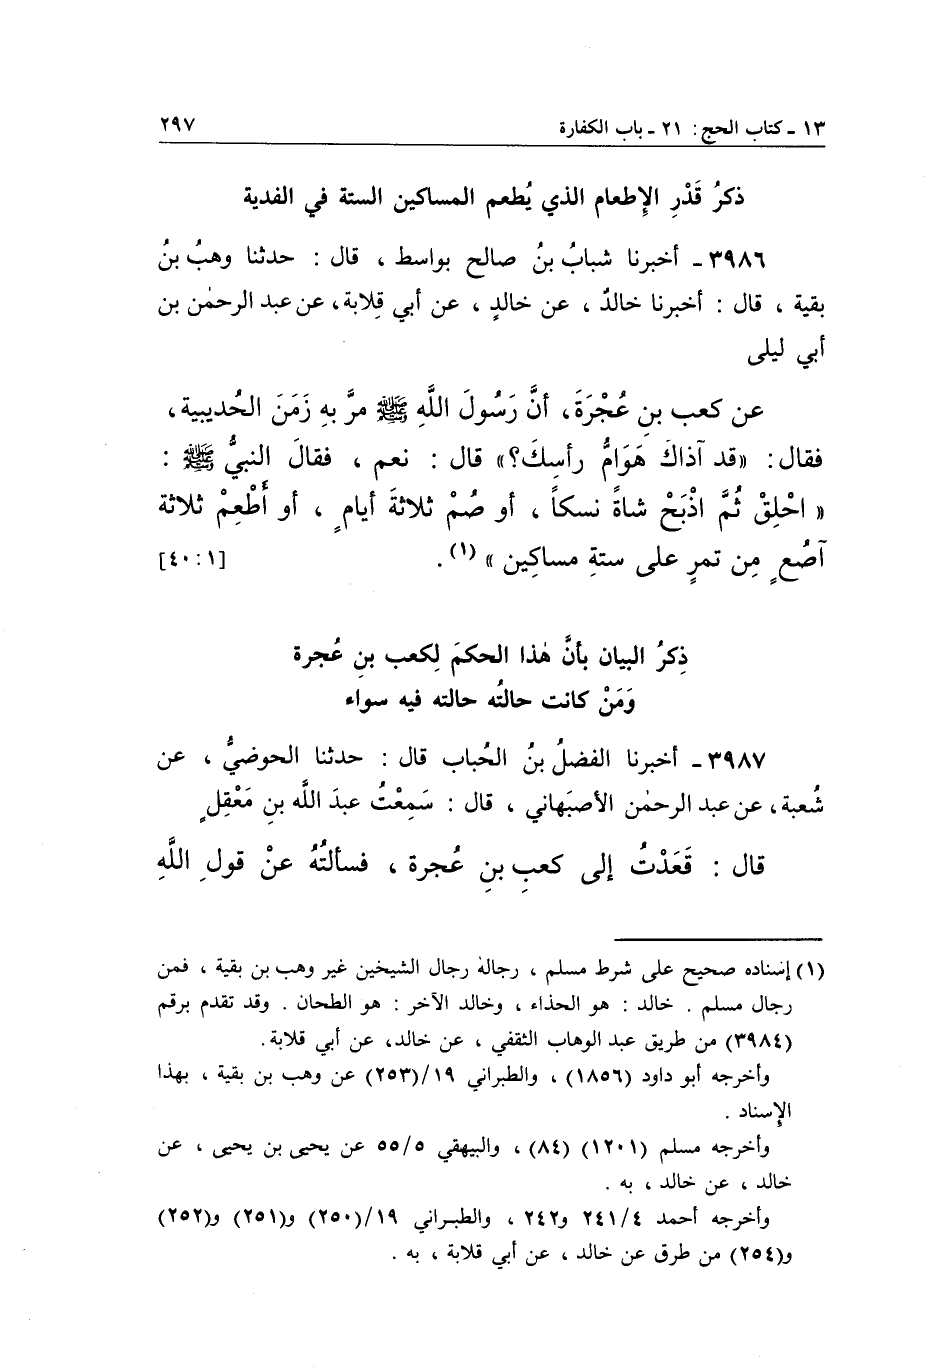 ١٣ ـ كتاب الحج : ٢١ ـ باب الكفارة ٢٩٧
ذكرُ قَدْرِ الإِطعام الذي يُطعم المساكين الستة في الفدية
٣٩٨٦ ـ أخبرنا شبابُ بنُ صالح بواسط ، قال : حدثنا وهبُ بنُ
بقية ، قال : أخبرنا خالدٌ ، عن خالدٍ ، عن أبي قِلابة، عن عبد الرحمٰن بن
أبي ليلى
عن كعب بنِ عُجْرَةَ، أنَّ رَسُولَ اللَّهِ ﷺ مرَّ بهِ زَمَنَ الحُديبية،
فقال: «قد آذاكَ هَوَامُّ رأسِكَ؟» قال : نعم ، فقالَ النبيُّ ﷺ :
« احْلِقْ ثُمَّ اذْبَحْ شاةً نسكاً ، أو صُمْ ثلاثةَ أيامٍ ، أو أَطْعِمْ ثلاثة
آصُعٍ مِن تمرٍ على ستةِ مساكِين » (١). [٤٠:١]
ذِكرُ البيان بأنَّ هٰذا الحكمَ لِكعب بنِ عُجرة
وَمَنْ كانت حالتُه حالته فيه سواء
٣٩٨٧ ـ أخبرنا الفضلُ بنُ الحُباب قال : حدثنا الحوضيُّ ، عن
شُعبة، عن عبد الرحمٰن الأصبَهاني ، قال : سَمِعْتُ عبدَ اللَّه بنِ مَعْقِلٍ
قال : قَعَدْتُ إلى كعبِ بنِ عُجرة ، فسألتُهُ عنْ قولِ اللَّهِ
(١) إسناده صحيح على شرط مسلم ، رجاله رجال الشيخين غير وهب بن بقية ، فمن
رجال مسلم . خالد : هو الحذاء ، وخالد الآخر : هو الطحان . وقد تقدم برقم
(٣٩٨٤) من طريق عبد الوهاب الثقفي ، عن خالد، عن أبي قلابة.
وأخرجه أبو داود (١٨٥٦) ، والطبراني ١٩/(٢٥٣) عن وهب بن بقية ، بهذا
الإِسناد .
وأخرجه مسلم (١٢٠١) (٨٤) ، والبيهقي ٥٥/٥ عن يحيى بن يحيى ، عن
خالد ، عن خالد ، به .
وأخرجه أحمد ٢٤١/٤ و٢٤٢ ، والطبراني ١٩/(٢٥٠) و(٢٥١) و(٢٥٢)
و(٢٥٤) من طرق عن خالد ، عن أبي قلابة ، به .